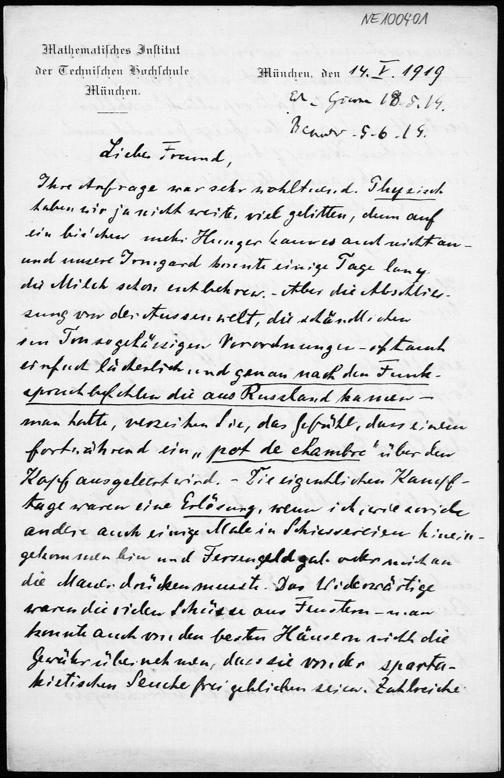 NE100401
Mathematisches Institut
der Technischen Hochschule
München.
München, den 14. V. 1919
18.5.19.
5.6.19.
Lieber Freund,
Ihre Anfrage war sehr wohltuend. Physisch
haben wir ja nicht weiter viel gelitten, denn auf
ein bischen mehr Hunger kam es auch nicht an -
und unsere Irmgard konnte einige Tage lang
die Milch schon entbehren. - Aber die Abschlies-
sung von der Aussenwelt, die schändlichen
im Ton so gehässigen Verordnungen - oft auch
einfach lächerlich und genau nach den Funk-
spruchbefehlen die aus Russland kamen -
man hatte, verzeihen Sie, das Gefühl, dass einem
fortwährend ein „pot de chambre" über den
Kopf ausgeleert wird. - Die eigentlichen Kampf-
tage waren eine Erlösung, wenn ich, wie so viele
andere auch einige Male in Schiessereien hinein-
gekommen bin und Fersengeld gab oder mich an
die Mauer drücken musste. Das Widerwärtige
waren die vielen Schüsse aus Fenstern - man
konnte auch von den besten Häusern nicht die
Gewähr übernehmen, dass sie von der sparta-
kistischen Seuche frei geblieben seien. Zahlreiche